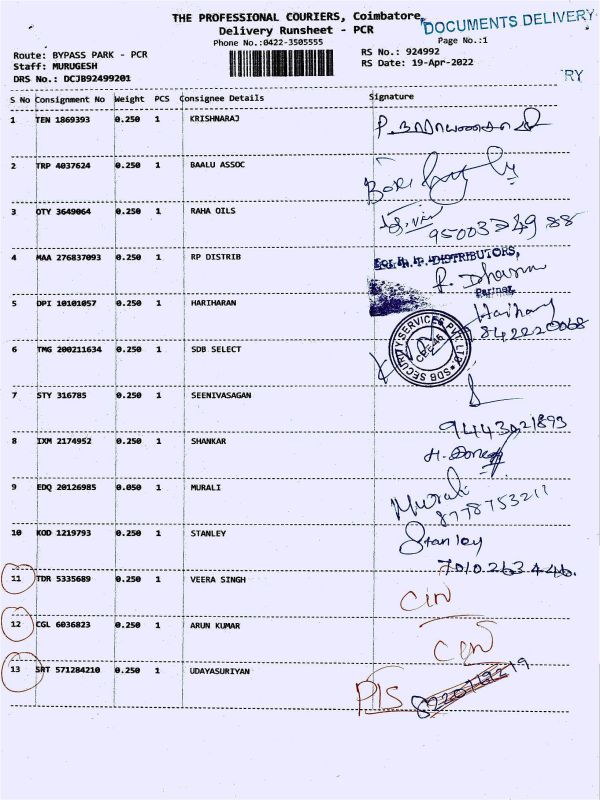 THE PROFESSIONAL COURIERS, Coimbatore,
DOCUMENTS DELIVERY
Delivery Runsheet - PCR
Phone No.:0422-3505555
Page No.:1
Route: BYPASS PARK - PCR
RS No.: 924992
Staff: MURUGESH
RS Date: 19-Apr-2022
DRS No.: DCJB92499201
RY
S No Consignment No Weight PCS Consignee Details Signature
1 TEN 1869393 0.250 1 KRISHNARAJ
2 TRP 4037624 0.250 1 BAALU ASSOC
3 OTY 3649064 0.250 1 RAHA OILS
4 MAA 276837093 0.250 1 RP DISTRIB
For R.P. DISTRIBUTORS,
P. Dharan
Partner
5 DPI 10101057 0.250 1 HARIHARAN
Harihary
842220068
6 TMG 200211634 0.250 1 SDB SELECT
SDB SECURITY SERVICES PVT. LTD.
CBE-45
7 STY 316785 0.250 1 SEENIVASAGAN
9443021893
8 IXM 2174952 0.250 1 SHANKAR
9 EDQ 20126985 0.050 1 MURALI
Murali
8778753211
10 KOD 1219793 0.250 1 STANLEY
Stanley
7010263446.
11 TDR 5335689 0.250 1 VEERA SINGH
12 CGL 6036823 0.250 1 ARUN KUMAR
13 SRT 571284210 0.250 1 UDAYASURIYAN
PIS